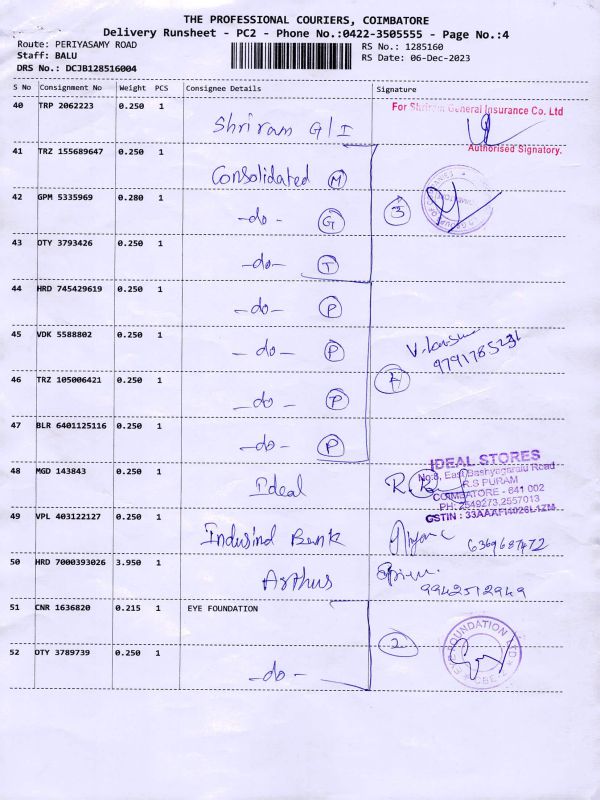 THE PROFESSIONAL COURIERS, COIMBATORE
Delivery Runsheet - PC2 - Phone No.:0422-3505555 - Page No.:4
Route: PERIYASAMY ROAD
RS No.: 1285160
Staff: BALU
RS Date: 06-Dec-2023
DRS No.: DCJB128516004
S No Consignment No Weight PCS Consignee Details Signature
40 TRP 2062223 0.250 1
Shriram G/I
For Shriram General Insurance Co. Ltd
Authorised Signatory.
41 TRZ 155689647 0.250 1
Consolidated M
42 GPM 5335969 0.280 1
-do- G
3
43 OTY 3793426 0.250 1
-do- T
44 HRD 745429619 0.250 1
-do- P
45 VDK 5588802 0.250 1
-do- P
9791785231
46 TRZ 105006421 0.250 1
-do- P
4
47 BLR 6401125116 0.250 1
-do- P
48 MGD 143843 0.250 1
Ideal
IDEAL STORES
No:8, East Bashyagaralu Road
R.S PURAM
COIMBATORE - 641 002
PH: 2549273,2557013
GSTIN : 33AAAFI4926L1ZM
49 VPL 403122127 0.250 1
Indusind Bank
6369687472
50 HRD 7000393026 3.950 1
Arthus
9942512949
51 CNR 1636820 0.215 1 EYE FOUNDATION
2
EYE FOUNDATION LTD
CBE-2
52 OTY 3789739 0.250 1
-do-